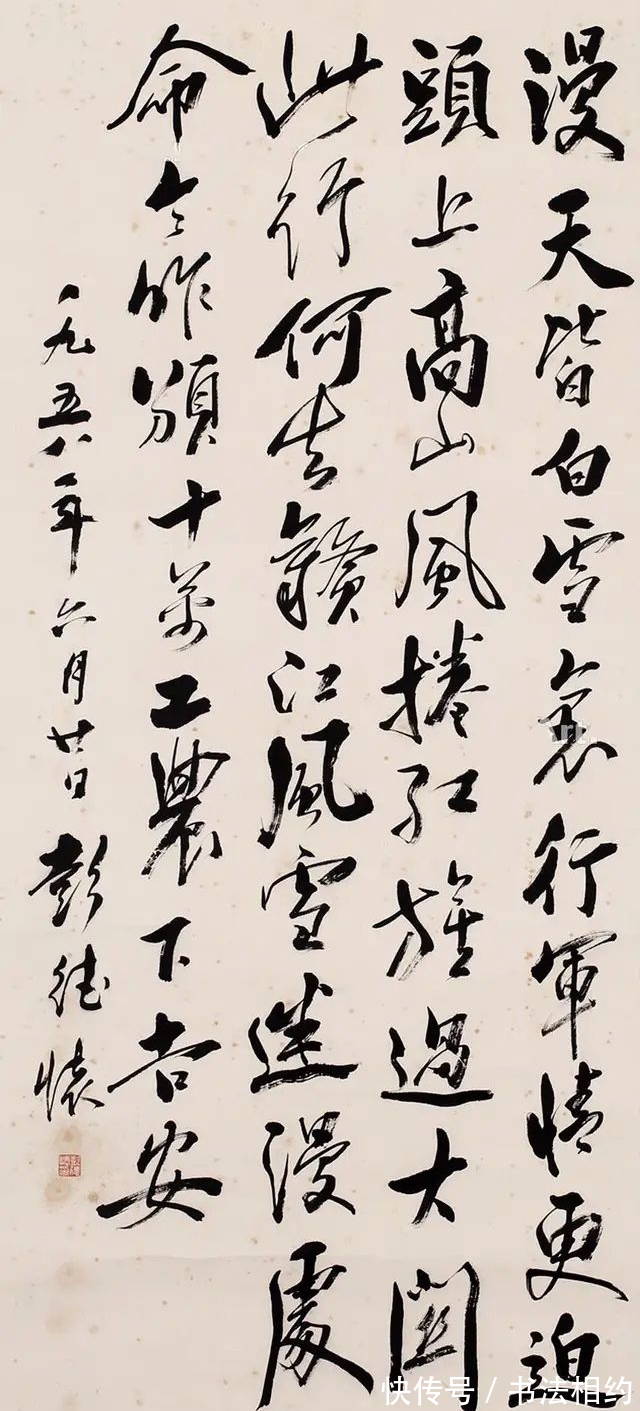 漫天皆白雪裏行軍情更迫
頭上高山風捲紅旗過大關
此行何去贛江風雪迷漫處
命令昨頒十萬工農下吉安
一九五八年六月廿日 彭德懷
快传号 / 书法相约